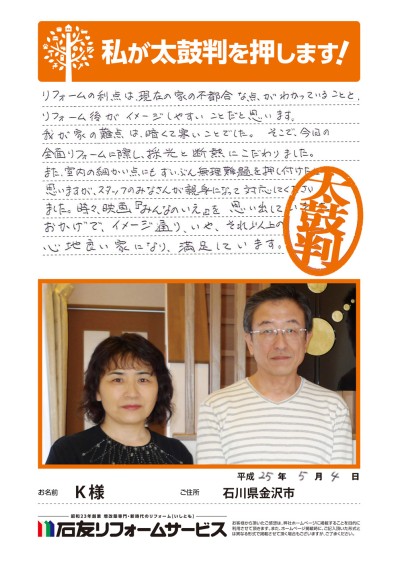 私が太鼓判を押します!
リフォームの利点は、現在の家の不都合な点がわかっていることと、
リフォーム後がイメージしやすいことだと思います。
我が家の難点は、暗くて寒いことでした。そこで、今回の
全面リフォームに際し、採光と断熱にこだわりました。
また、室内の細かい点にもずいぶん無理難題を押し付けた
思いますが、スタッフのみなさんが親身になって対応してくださ
ました。時々、映画『みんなのいえ』を思い出して
おかげで、イメージ通り、いや、それ以上の
心地良い家になり、満足しています。
太鼓判
平成25年5月4日
お名前 K様 ご住所 石川県金沢市
昭和23年創業 増改築専門・新時代のリフォーム(いしとも)
石友リフォームサービス
お客様から頂いたご感想は、弊社ホームページに掲載することを目的に